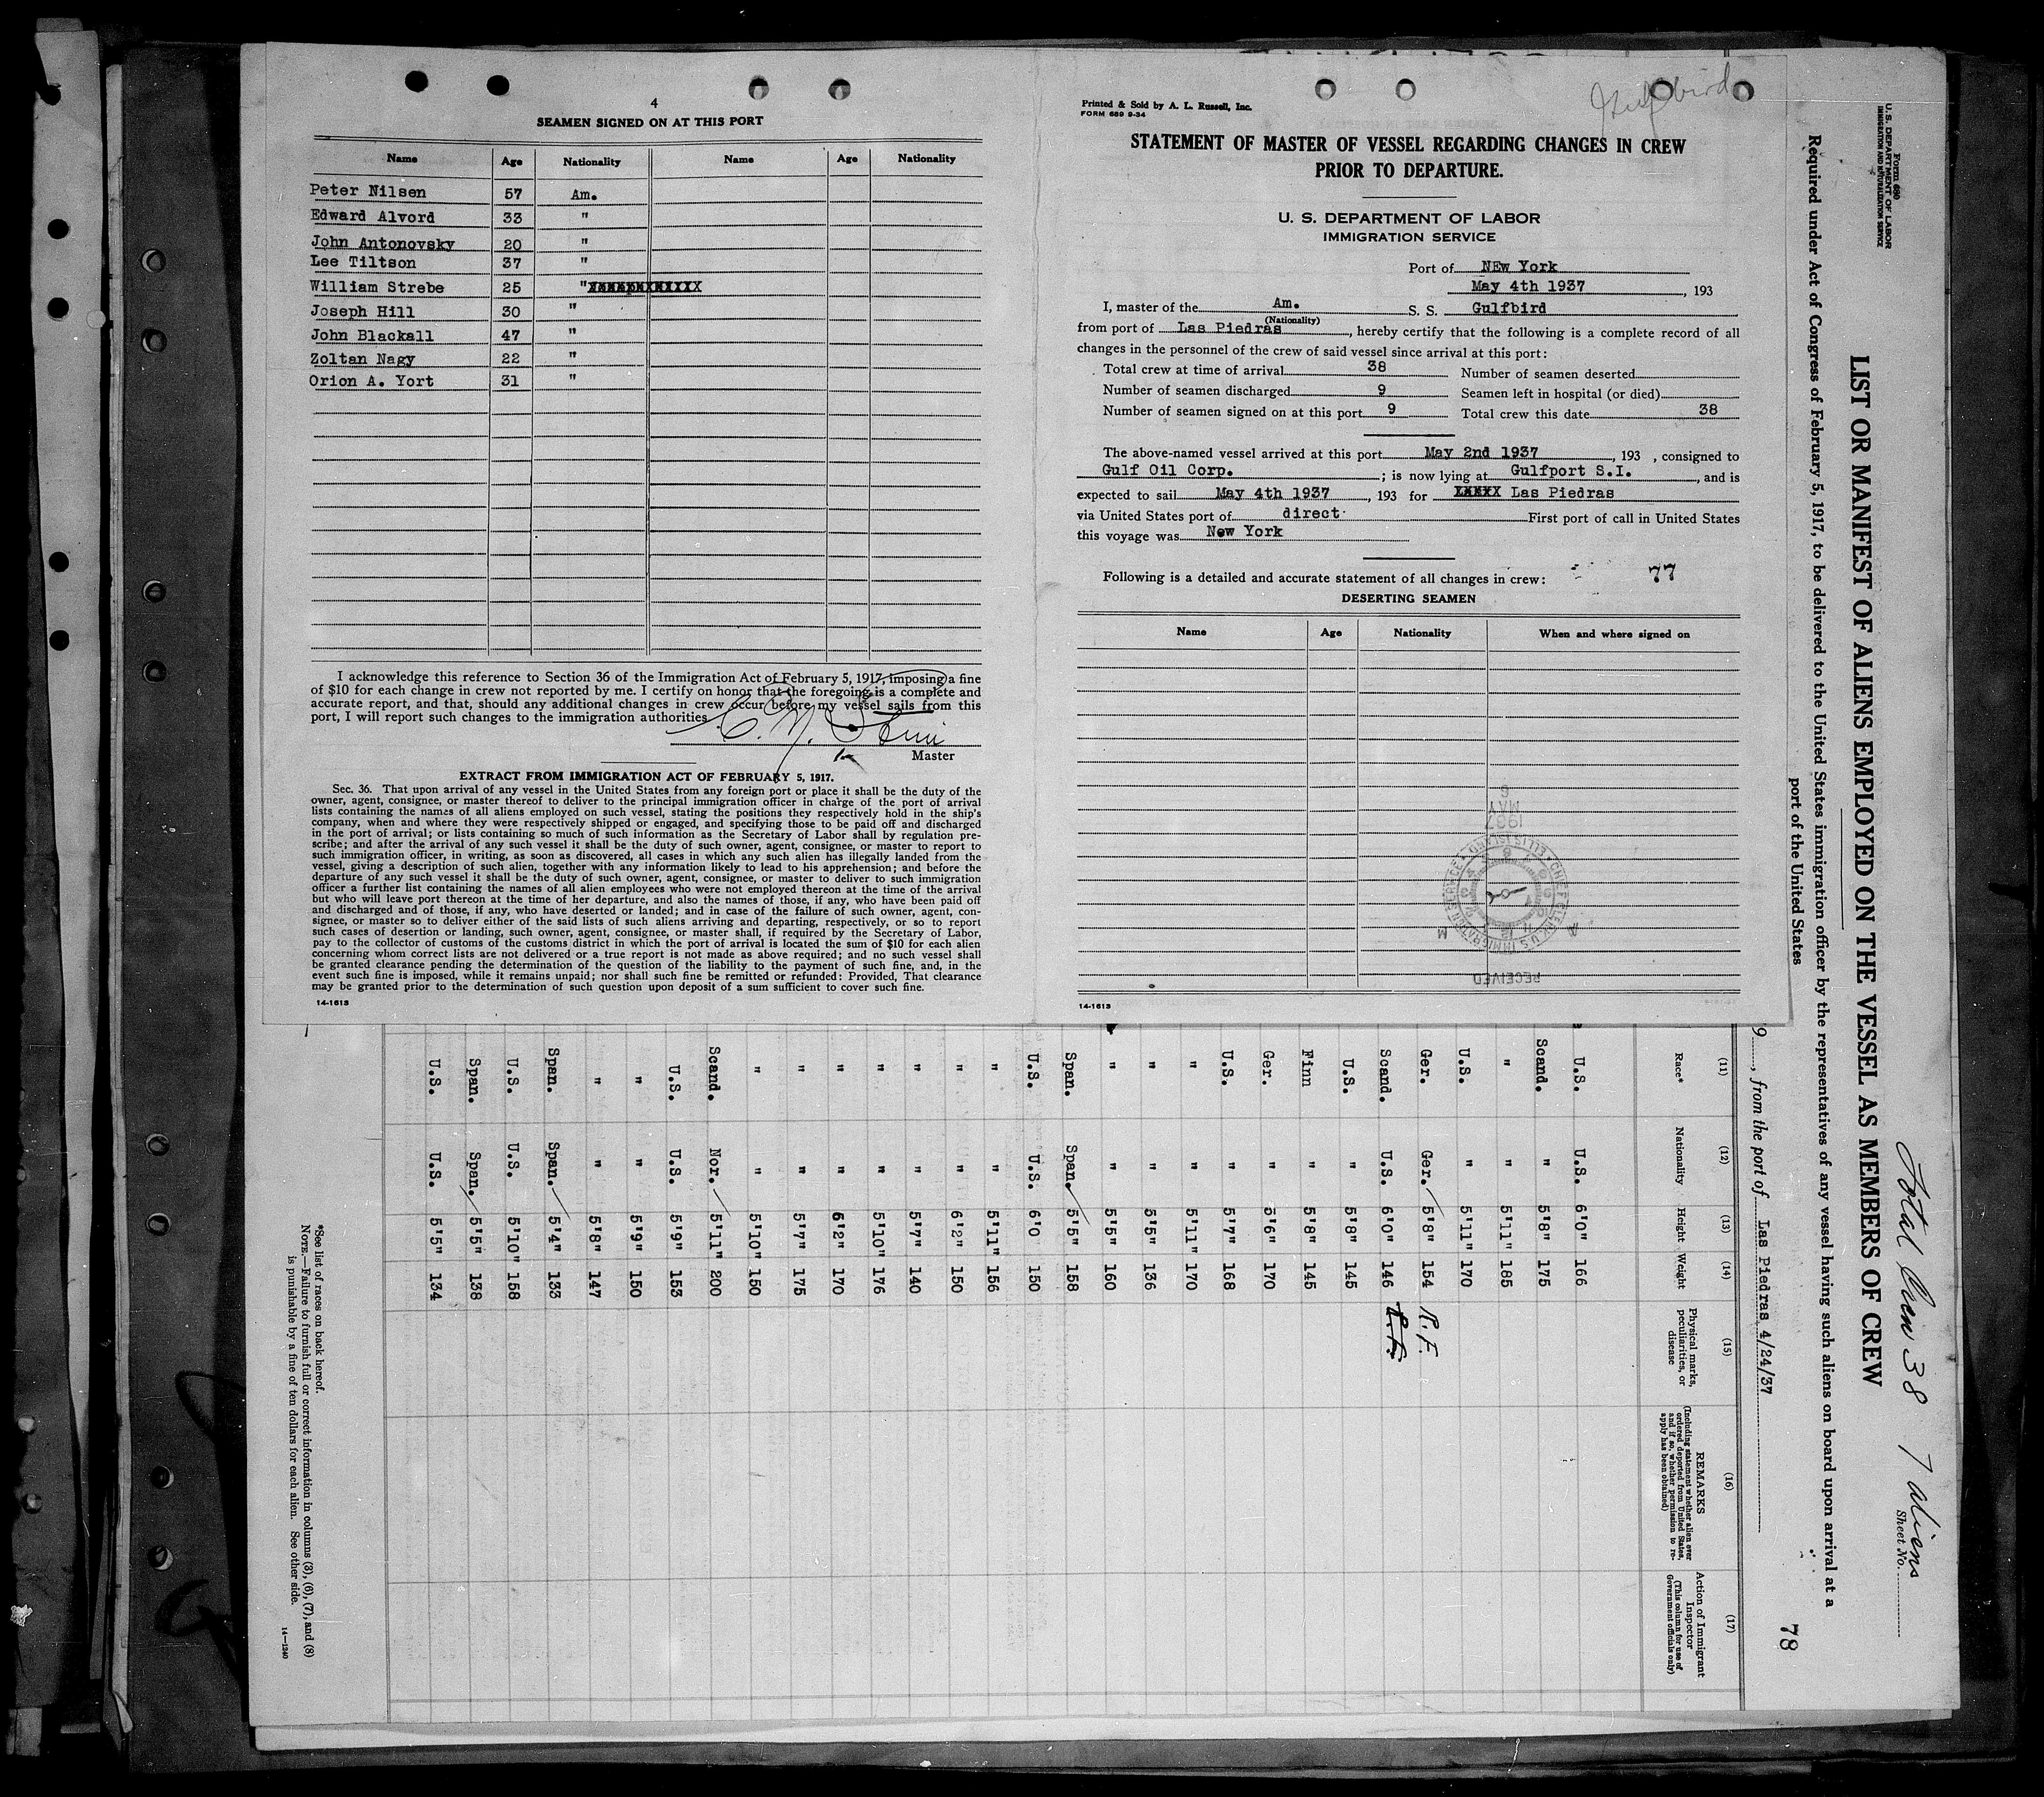 4
SEAMEN SIGNED ON AT THIS PORT
Name Age Nationality Name Age Nationality
Peter Nilsen 57 Am.
Edward Alvord 33 "
John Antonovsky 20 "
Lee Tiltson 37 "
William Strebe 25 "
Joseph Hill 30 "
John Blackall 47 "
Zoltan Nagy 22 "
Orion A. Yort 31 "
I acknowledge this reference to Section 36 of the Immigration Act of February 5, 1917, imposing a fine
of $10 for each change in crew not reported by me. I certify on honor that the foregoing is a complete and
accurate report, and that, should any additional changes in crew occur before my vessel sails from this
port, I will report such changes to the immigration authorities
Master
EXTRACT FROM IMMIGRATION ACT OF FEBRUARY 5, 1917.
Sec. 36. That upon arrival of any vessel in the United States from any foreign port or place it shall be the duty of the
owner, agent, consignee, or master thereof to deliver to the principal immigration officer in charge of the port of arrival
lists containing the names of all aliens employed on such vessel, stating the positions they respectively hold in the ship's
company, when and where they were respectively shipped or engaged, and specifying those to be paid off and discharged
in the port of arrival; or lists containing so much of such information as the Secretary of Labor shall by regulation pre-
scribe; and after the arrival of any such vessel it shall be the duty of such owner, agent, consignee, or master to report to
such immigration officer, in writing, as soon as discovered, all cases in which any such alien has illegally landed from the
vessel, giving a description of such alien, together with any information likely to lead to his apprehension; and before the
departure of any such vessel it shall be the duty of such owner, agent, consignee, or master to deliver to such immigration
officer a further list containing the names of all alien employees who were not employed thereon at the time of the arrival
but who will leave port thereon at the time of her departure, and also the names of those, if any, who have been paid off
and discharged and of those, if any, who have deserted or landed; and in case of the failure of such owner, agent, con-
signee, or master so to deliver either of the said lists of such aliens arriving and departing, respectively, or so to report
such cases of desertion or landing, such owner, agent, consignee, or master shall, if required by the Secretary of Labor,
pay to the collector of customs of the customs district in which the port of arrival is located the sum of $10 for each alien
concerning whom correct lists are not delivered or a true report is not made as above required; and no such vessel shall
be granted clearance pending the determination of the question of the liability to the payment of such fine, and, in the
event such fine is imposed, while it remains unpaid; nor shall such fine be remitted or refunded: Provided, That clearance
may be granted prior to the determination of such question upon deposit of a sum sufficient to cover such fine.
14-1613
Gulfbird
Printed & Sold by A. L. Russell, Inc.
FORM 689 9-34
STATEMENT OF MASTER OF VESSEL REGARDING CHANGES IN CREW
PRIOR TO DEPARTURE.
U. S. DEPARTMENT OF LABOR
IMMIGRATION SERVICE
Port of NEw York
May 4th 1937, 193
I, master of the Am. S. S. Gulfbird
(Nationality)
from port of Las Piedras, hereby certify that the following is a complete record of all
changes in the personnel of the crew of said vessel since arrival at this port:
Total crew at time of arrival 38 Number of seamen deserted
Number of seamen discharged 9 Seamen left in hospital (or died)
Number of seamen signed on at this port 9 Total crew this date 38
The above-named vessel arrived at this port May 2nd 1937, 193 , consigned to
Gulf Oil Corp. ; is now lying at Gulfport S.I., and is
expected to sail May 4th 1937, 193 for Las Piedras
via United States port of direct First port of call in United States
this voyage was New York
Following is a detailed and accurate statement of all changes in crew: 77
DESERTING SEAMEN
Name Age Nationality When and where signed on
RECEIVED
A M
CHIEF CLERK U.S. IMMIGRATION SERVICE ELLIS ISLAND
1937
MAY
6
14-1613
Form 680
U. S. DEPARTMENT OF LABOR
IMMIGRATION AND NATURALIZATION SERVICE
Total Crew 38 7 aliens
Sheet No.
LIST OR MANIFEST OF ALIENS EMPLOYED ON THE VESSEL AS MEMBERS OF CREW
Required under Act of Congress of February 5, 1917, to be delivered to the United States immigration officer by the representatives of any vessel having such aliens on board upon arrival at a
port of the United States
78
9, from the port of Las Piedras 4/24/37
(11) (12) (13) (14) (15) (16) (17)
Race* Nationality Height Weight Physical marks, peculiarities, or disease REMARKS (Including statement whether alien ever ordered deported from United States, and if so, whether permission to re-apply has been obtained) Action of Immigrant Inspector (This column for use of Government officials only)
U.S. U.S. 6'0" 166
Scand. " 5'8" 175
" " 5'11" 185
U.S. " 5'11" 170
Ger. Ger. 5'8" 154 R.F.
Scand. U.S. 6'0" 146
U.S. " 5'8" 145
Finn " 5'8" 145
Ger. " 5'6" 170
U.S. " 5'7" 168
" " 5'11" 170
" " 5'5" 136
" " 5'5" 160
Span. Span. 5'5" 158
U.S. U.S. 6'0 150
" " 5'11" 156
" " 6'2" 150
" " 5'7" 140
" " 5'10" 176
" " 6'2" 170
" " 5'7" 175
" " 5'10" 150
Scand. Nor. 5'11" 200
U.S. U.S. 5'9" 153
" " 5'9" 150
" " 5'8" 147
Span. Span. 5'4" 133
U.S. U.S. 5'10" 158
Span. Span. 5'5" 138
U.S. U.S. 5'5" 134
*See list of races on back hereof.
NOTE.—Failure to furnish full or correct information in columns (3), (6), (7), and (8)
is punishable by a fine of ten dollars for each alien. See other side.
14—1240